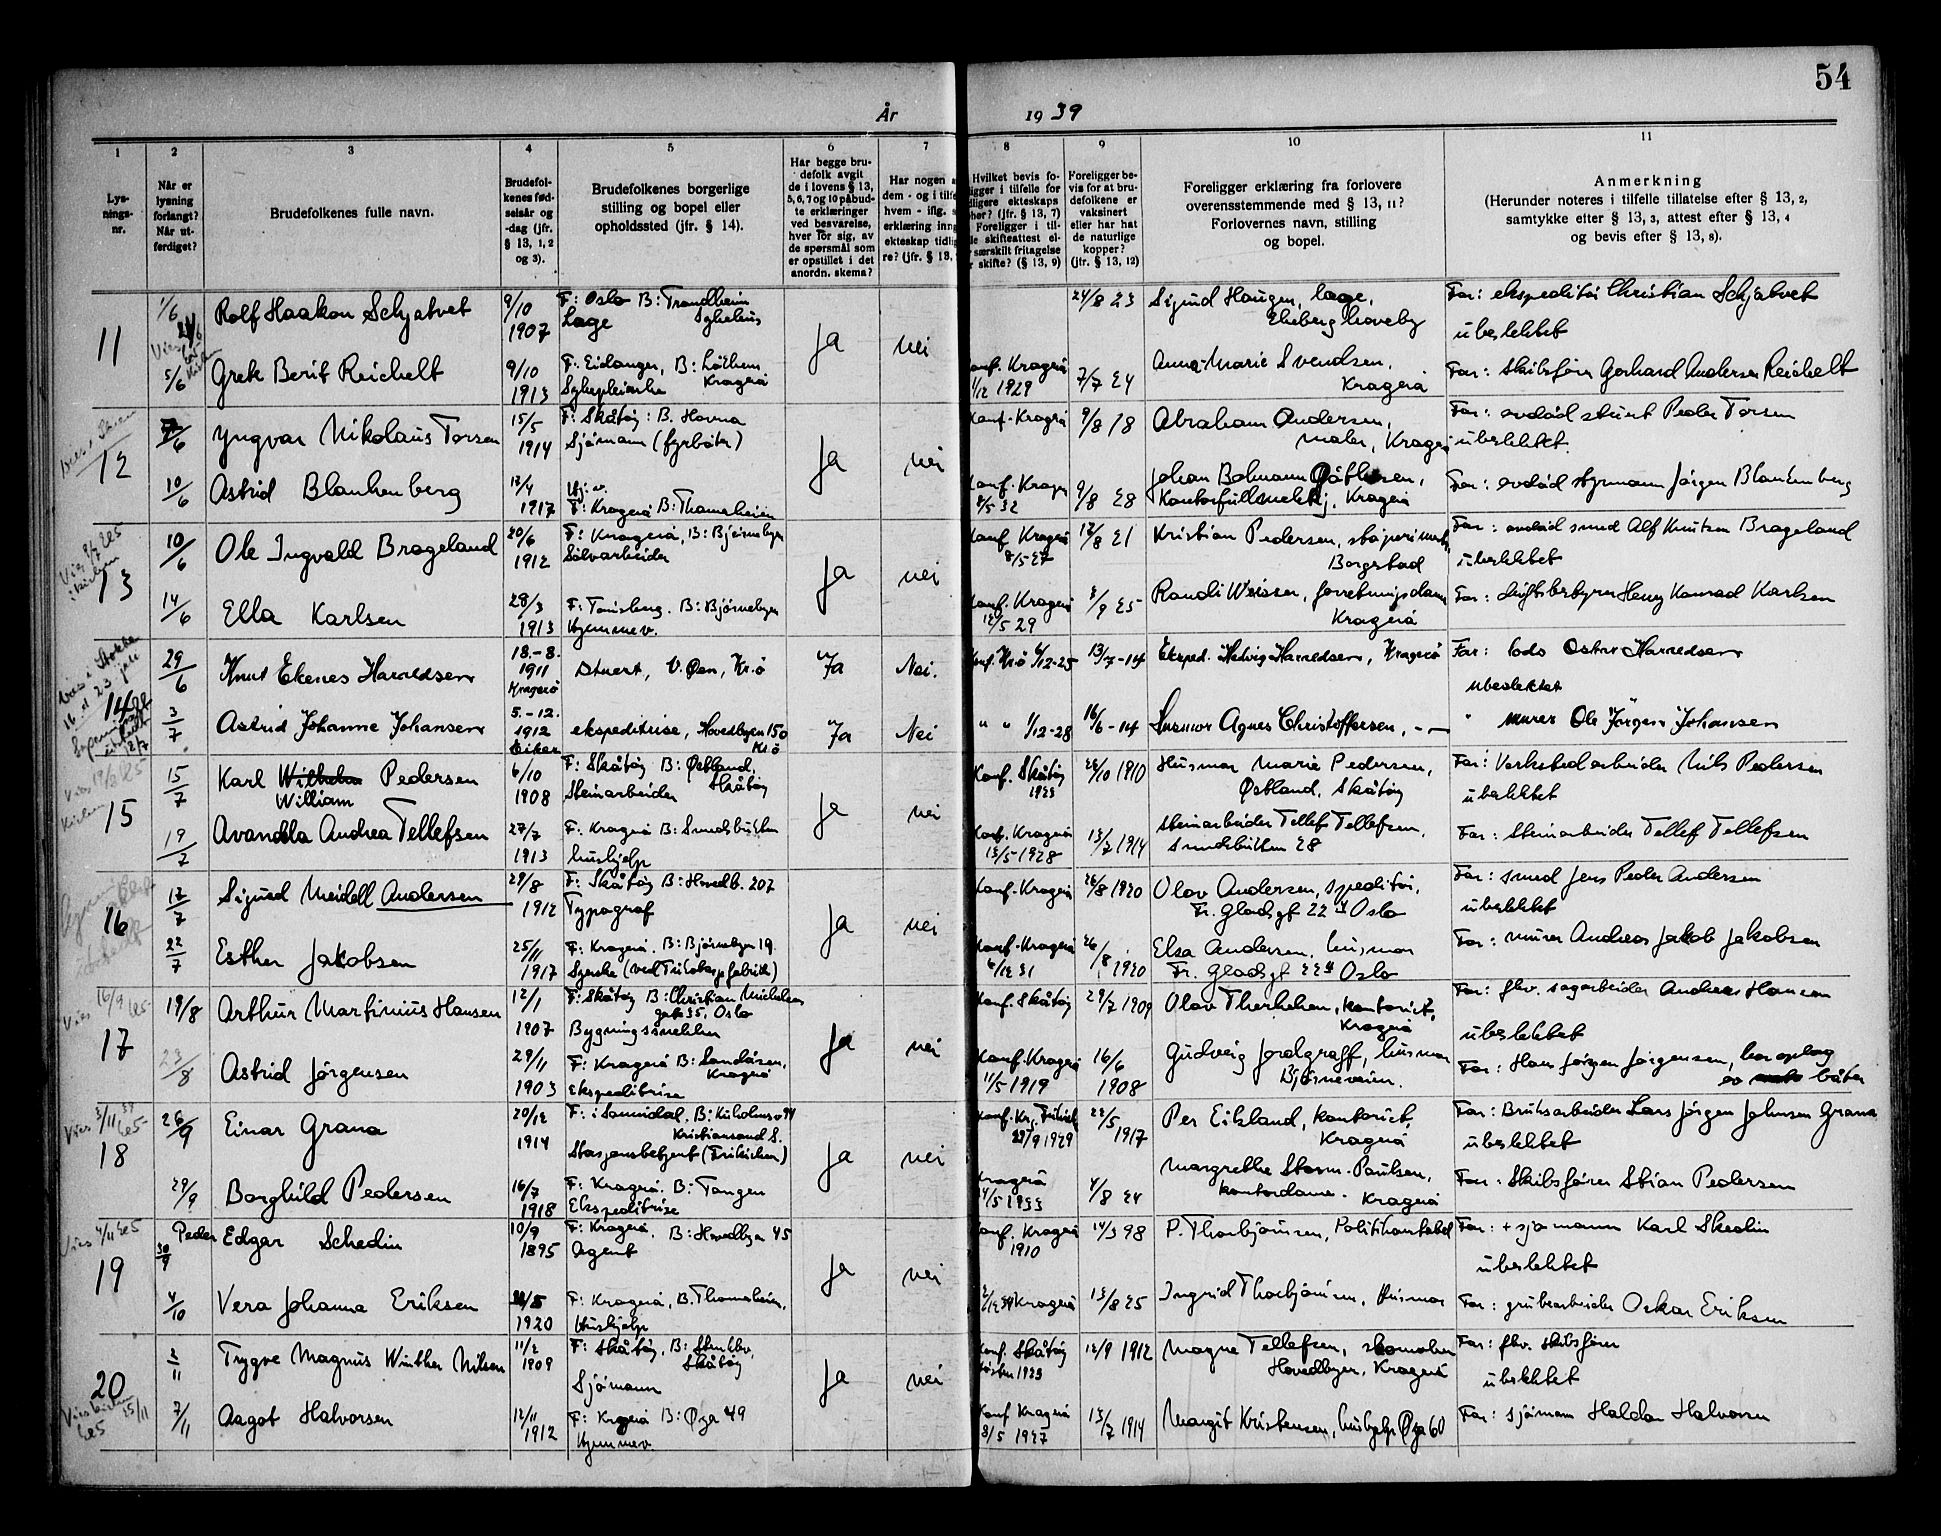 54
År 1939
1 2 3 4 5 6 7 8 9 10 11
Lys-
nings-
nr.
Når er
lysning
forlangt?
Når ut-
ferdiget?
Brudefolkenes fulle navn.
Brudefol-
kenes fød-
selsår og
-dag (jfr.
§ 13, 1, 2
og 3).
Brudefolkenes borgerlige
stilling og bopel eller
opholdssted (jfr. § 14).
Har begge bru-
defolk avgit
de i lovens § 13,
5, 6, 7 og 10 påbud-
te erklæringer
ved besvarelse,
hver for sig, av
de spørsmål som
er opstillet i det
anordn. skema?
Har nogen a
dem - og i tilfe
hvem - iflg. s
erklæring inng
ekteskap tidlig
re? (jfr. § 13,
Hvilket bevis fo-
ligger i tilfelle for
dligere ekteskaps
her? (jfr. § 13, 7)
Foreligger i til-
le skifteattest el-
særskilt fritagelse
r skifte? (§ 13, 9)
Foreligger be-
vis for at bru-
defolkene er
vaksinert
eller har hat
de naturlige
kopper?
(jfr. § 13, 12)
Foreligger erklæring fra forlovere
overensstemmende med § 13, 11?
Forlovernes navn, stilling
og bopel.
Anmerkning
(Herunder noteres i tilfelle tillatelse efter § 13, 2,
samtykke etter § 13, 3, attest efter § 13, 4
og bevis efter § 13, 8).
11
1/6 Rolf Haakon Schjatvet 9/10 1907
F: Oslo B: Trondheim
Læge Sykehus
Ja nei
24/8 23 Sigurd Haugen, læge,
Far: ekspeditør Christian Schjatvet
ubeslektet
5/6 Grete Berit Reichelt 9/10 1913
F: Eidanger, B:
Kragerø
Sykepleierske
Konf. Kragerø
1/12 1929
7/7 24 Anna-Marie Svendsen,
Kragerø
Far: skibsfører Gerhard Andersen Reichelt
12
7/6 Yngvar Nikolaus Torsen 15/5 1914
F: Skåtøy: B. Havna
Sjømann (fyrbøter)
Ja nei
Konf. Kragerø
9/8 18 Abraham Andersen,
maler, Kragerø
Far: avdød stuert Peder Torsen
ubeslektet.
10/6 Astrid Blankenberg 13/4 1917
Hj.v.
F: Kragerø B: Thomesheien
Konf. Kragerø
8/5 32
9/8 28 Johan Bohmann
Kragerø
Far: avdød styrmann Jørgen Blankenberg
13
10/6 Ole Ingvald Brageland 20/6 1912
F: Kragerø, B: Bjørnebyen
Sølvarbeider
Ja nei
Konf. Kragerø
8/5-27
17/8 21 Kristian Pedersen,
Borgstad
Far: avdød smed Alf Knutsen Brageland
ubeslektet
14/6 Ella Karlsen 28/3 1913
F: Tønsberg. B: Bjørnebyen
Hjemmev.
Konf. Kragerø
12/5 29
8/9 25 Randi Weisser, forretningsdame
Kragerø
Far: driftsbestyrer Henry Konrad Karlsen
14
29/6 Knut Ekenes Harredsen 18.-8. 1911
Kragerø
Stuert, V. Øen, Kr.ø
Ja Nei.
Konf. Kr.ø 6/12-25
13/7-14 Eksped. Hedvig Harredsen, Kragerø
Far: lods Oskar Harredsen
Ubeslektet
3/7 Astrid Johanne Johansen 5.-12. 1912
Eiker
ekspeditrise, Hovedbyen 150
Kr.ø
Ja Nei
" " 1/12-28
16/6-14 Husmor Agnes Christoffersen, -"-
" murer Ole Jørgen Johansen
15
15/7 Karl Wilhelm Pedersen
William
6/10 1908
F: Skåtøy B: Østland,
Skåtøy
Steinarbeider
Ja nei
Konf. Skåtøy
1923
28/10 1910 Husmor Marie Pedersen,
Østland, Skåtøy
Far: Verkstedarbeider Nils Pedersen
ubeslektet
19/7 Avandla Andrea Tellefsen 27/7 1913
F: Kragerø B: Smedsbukten
hushjelp
Konf. Kragerø
13/5-1928
13/7 1914 Steinarbeider Tellef Tellefsen,
Smedsbukten 28
Far: Steinarbeider Tellef Tellefsen
16
17/7 Sigurd Meidell Andersen 29/8 1912
F: Skåtøy B: Hovedb. 207
Typograf
Ja nei
Konf. Kragerø
26/8 1920 Olav Andersen, speditør,
Fr. Gladsgt 22 II Oslo
Far: smed Jens Peder Andersen
ubeslektet
22/7 Esther Jakobsen 25/11 1917
F: Kragerø. B: Bjørnebyen 19.
Syerske (ved Trikotasjefabrikk)
Konf. Kragerø
6/12 31
26/8 1920 Elsa Andersen, husmor
Fr. Gladsgt 22 II Oslo
Far: murer Andreas Jakob Jakobsen
17
19/8 Arthur Martinius Hansen 12/1 1907
F: Skåtøy B: Christian Michelsens
gate 35, Oslo
Bygningssnekker
Ja nei
Konf. Skåtøy
29/7 1909 Olav Therkelsen, kontorist,
Kragerø
Far: fhv. sagarbeider Andreas Hansen
ubeslektet
23/8 Astrid Jørgensen 29/11 1903
F: Kragerø B: Sandåsen,
Kragerø
Ekspeditrise
Konf. Kragerø
11/5 1919
16/6 1908 Gudveig Jordgraff, husmor
Bjørneveien.
Far: Hans Jørgen Jørgensen, har oplag
av båter
18
26/9 Einar Grana 20/12 1914
F: i Sannidal, B: Kirkeholmen 94
Kristiansand S.
Stasjonsbetjent (Frikirken)
Ja nei
Konf. Kr. Frikirk
29/9 1929
22/5 1917 Per Eikland, kontorist,
Kragerø
Far: Bruksarbeider Lars Jørgen Johnsen Grana
ubeslektet
29/9 Borghild Pedersen 16/7 1918
F: Kragerø. B: Tangen
Ekspeditrise
Kragerø
4/5 1933
4/8 24 Margrethe Storm-Paulsen,
kontordame. Kragerø
Far: Skibsfører Stian Pedersen
19
30/9 Peder Edgar Schedin 10/9 1895
F: Kragerø. B: Hovedbyen 45
Agent
Ja nei
Konf. Kragerø
1910
14/3 98 P. Thorbjørnsen, Politikonstabel
Far: + sjømann Karl Skedin
ubeslektet
4/10 Vera Johanna Eriksen 1920
F: Kragerø, B. Thomesheien,
Hushjelp
Kragerø
13/8 25 Ingrid Thorbjørnsen, Husmor
Far: grubearbeider Oskar Eriksen
20
2/11 Trygve Magnus Winther Nilsen 11/2 1909
F: Skåtøy, B: Stenklev,
Skåtøy
Sjømann
Ja nei
Konf. Skåtøy
høsten 1923
12/9 1912 Magne Tellefsen, skomaker
Hovedbyen, Kragerø
Far: fhv. skibsfører
ubeslektet
7/11 Aagot Halvorsen 12/11 1912
F: Kragerø B: Øya 49
Hjemmev
Konf Kragerø
8/5 1927
13/7 1914 Margit Kristensen, hushjelp Øya 60
Far: sjømann Haldor Halvorsen